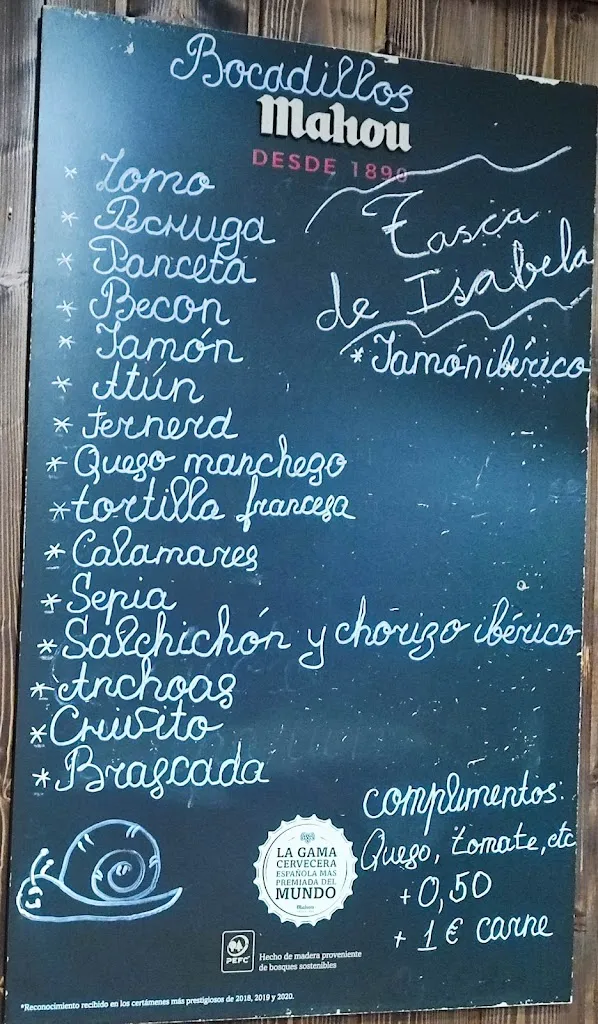 Bocadillos
Mahou
DESDE 1890
* Lomo
* Pechuga
* Panceta
* Becon
* Jamón
* Atún
* Ternera
* Queso manchego
* tortilla francesa
* Calamares
* Sepia
* Salchichón y chorizo ibérico
* Anchoas
* Chivito
* Brascada
Tasca
de Isabela
* Jamón ibérico
complimentos:
Queso, tomate, etc
+0,50
+ 1 € carne
LA GAMA
CERVECERA
ESPAÑOLA MÁS
PREMIADA DEL
MUNDO
Mahou
PEFC
Hecho de madera proveniente
de bosques sostenibles
*Reconocimiento recibido en los certámenes más prestigiosos de 2018, 2019 y 2020.